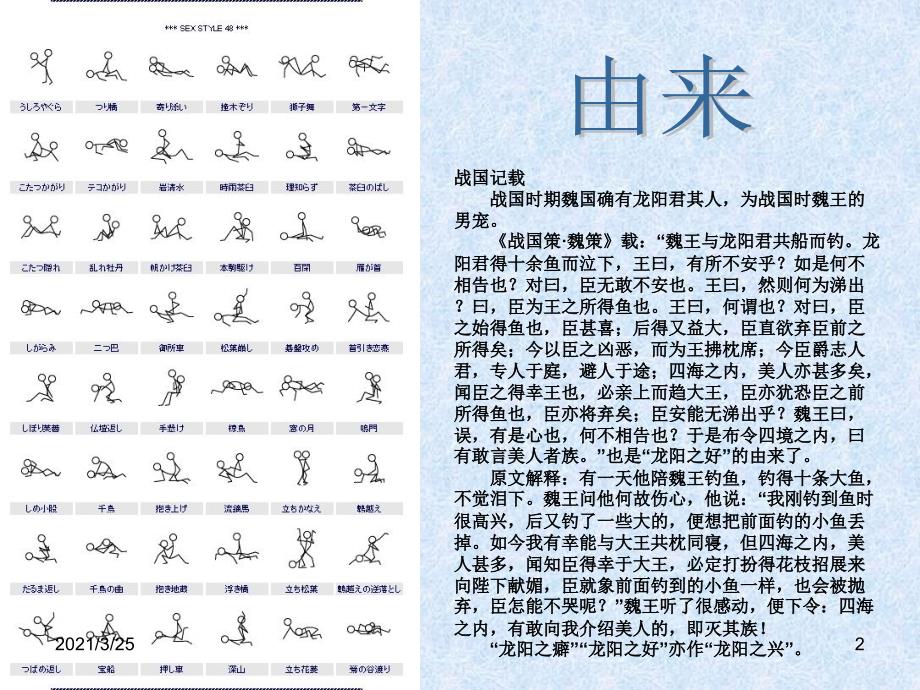 *** SEX STYLE 48 ***
うしろやぐら つり橋 寄り添い 撞木ぞり 獅子舞 第一文字
こたつかがり テコかがり 岩清水 時雨茶臼 理知らず 茶臼のばし
こたつ隠れ 乱れ牡丹 朝かけ茶臼 本駒駆け 百閉 雁が首
しがらみ 二つ巴 御所車 松葉崩し 碁盤攻め 首引き恋慕
しぼり芙蓉 仏壇返し 手懸け 椋鳥 窓の月 鳴門
しめ小股 千鳥 抱き上げ 流鏑馬 立ちかなえ 鵯越え
だるま返し 千鳥の曲 抱き地蔵 浮き橋 立ち松葉 鵯越えの逆落とし
つばめ返し 宝船 押し車 深山 立ち花菱 笏の谷渡り
2021/3/25
由来
战国记载
战国时期魏国确有龙阳君其人，为战国时魏王的
男宠。
《战国策·魏策》载：“魏王与龙阳君共船而钓。龙
阳君得十余鱼而泣下，王曰，有所不安乎？如是何不
相告也？对曰，臣无敢不安也。王曰，然则何为涕出
？曰，臣为王之所得鱼也。王曰，何谓也？对曰，臣
之始得鱼也，臣甚喜；后得又益大，臣直欲弃臣前之
所得矣；今以臣之凶恶，而为王拂枕席；今臣爵志人
君，专人于庭，避人于途；四海之内，美人亦甚多矣，
闻臣之得幸王也，必亲上而趋大王，臣亦犹恐臣之前
所得鱼也，臣亦将弃矣；臣安能无涕出乎？魏王曰，
误，有是心也，何不相告也？于是布令四境之内，曰
有敢言美人者族。”也是“龙阳之好”的由来了。
原文解释：有一天他陪魏王钓鱼，钓得十条大鱼，
不觉泪下。魏王问他何故伤心，他说：“我刚钓到鱼时
很高兴，后又钓了一些大的，便想把前面钓的小鱼丢
掉。如今我有幸能与大王共枕同寝，但四海之内，美
人甚多，闻知臣得幸于大王，必定打扮得花枝招展来
向陛下献媚，臣就象前面钓到的小鱼一样，也会被抛
弃，臣怎能不哭呢？”魏王听了很感动，便下令：四海
之内，有敢向我介绍美人的，即灭其族！
“龙阳之癖”“龙阳之好”亦作“龙阳之兴”。
2